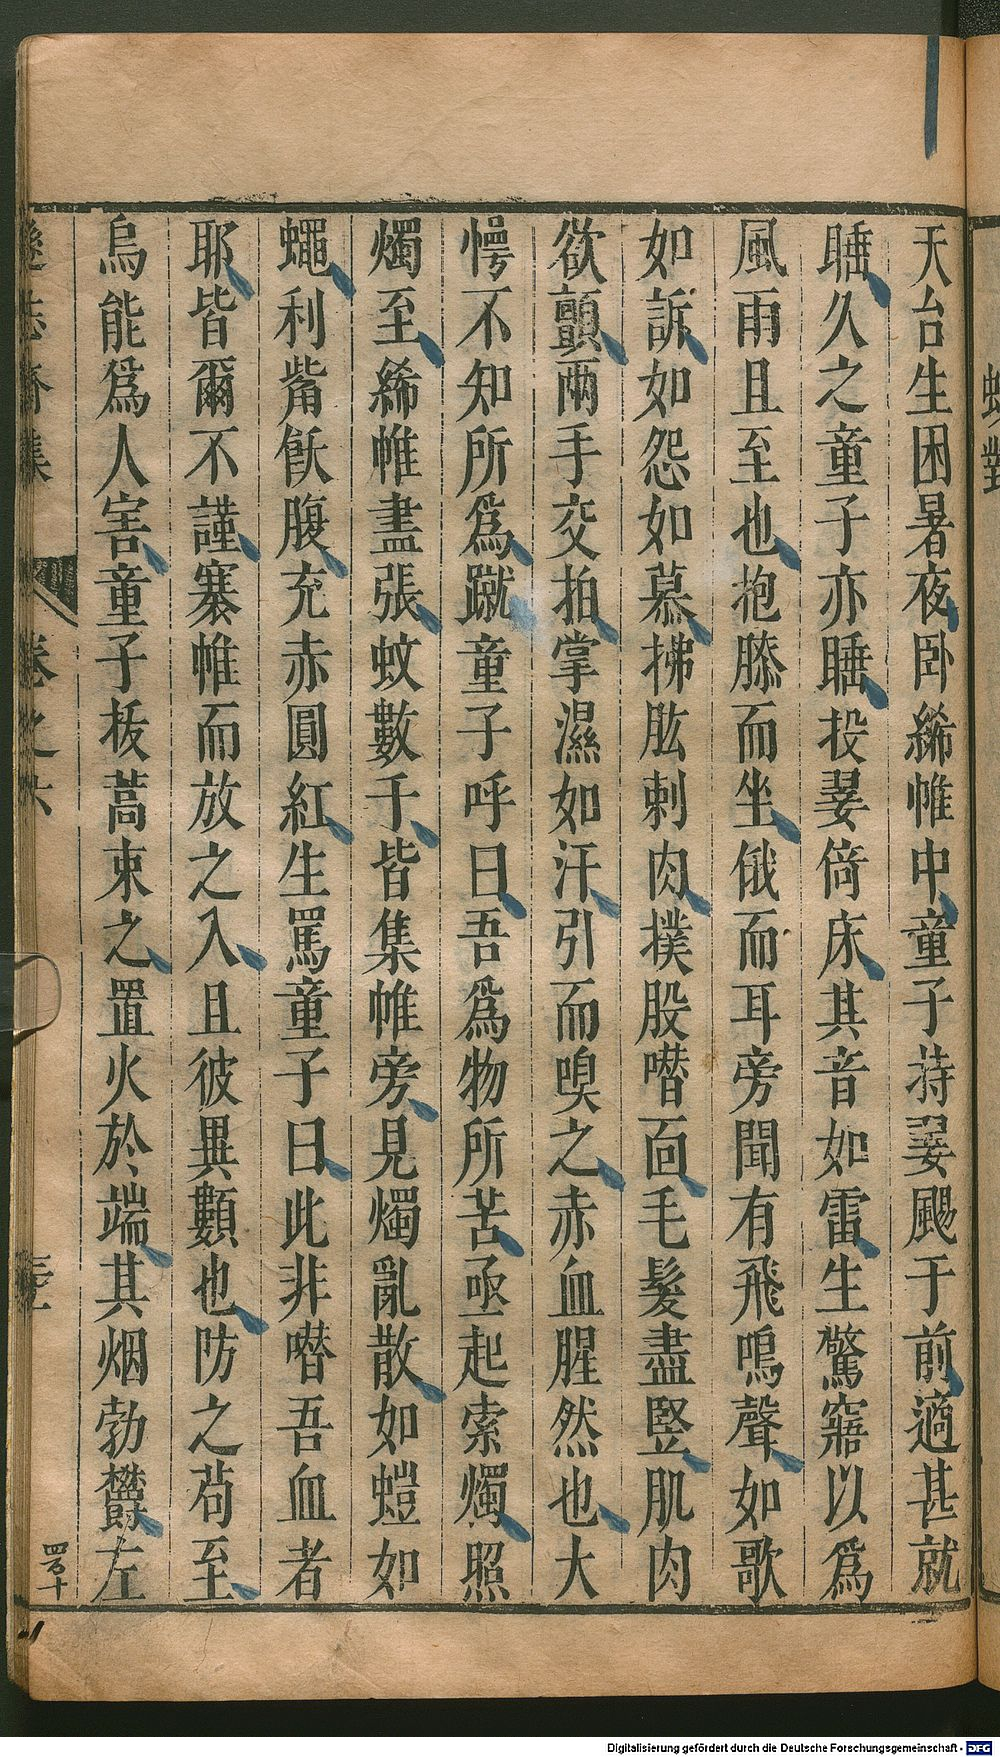 蚊對
天台生困暑夜卧絺帷中童子持翣颺于前適甚就
睡久之童子亦睡投翣倚床其音如雷生驚寤以爲
風雨且至也抱膝而坐俄而耳旁聞有飛鳴聲如歌
如訴如怨如慕拂肱刺肉撲股噆面毛髮盡竪肌肉
欲顫兩手交拍掌濕如汗引而嗅之赤血腥然也大
愕不知所爲蹴童子呼曰吾爲物所苦亟起索燭照
燭至絺帷盡張蚊數千皆集帷旁見燭亂散如螘如
蠅利觜飫腹充赤圓紅生罵童子曰此非噆吾血者
耶皆爾不謹褰帷而放之入且彼異類也防之苟至
烏能爲人害童子拔蒿束之置火於端其烟勃鬱左
遜志齋集 卷之六
四百十
Digitalisierung gefördert durch die Deutsche Forschungsgemeinschaft - DFG